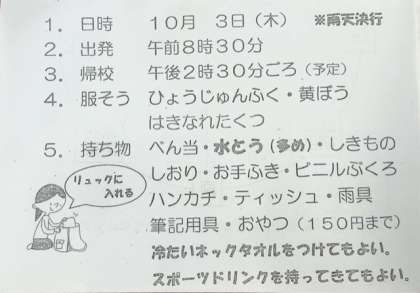 1. 日時 10月 3日(木) ※雨天決行
2. 出発 午前8時30分
3. 帰校 午後2時30分ごろ(予定)
4. 服そう ひょうじゅんふく・黄ぼう
はきなれたくつ
5. 持ち物 べん当・水とう(多め)・しきもの
しおり・お手ふき・ビニルぶくろ
リュックに
入れる
ハンカチ・ティッシュ・雨具
筆記用具・おやつ(150円まで)
冷たいネックタオルをつけてもよい。
スポーツドリンクを持ってきてもよい。